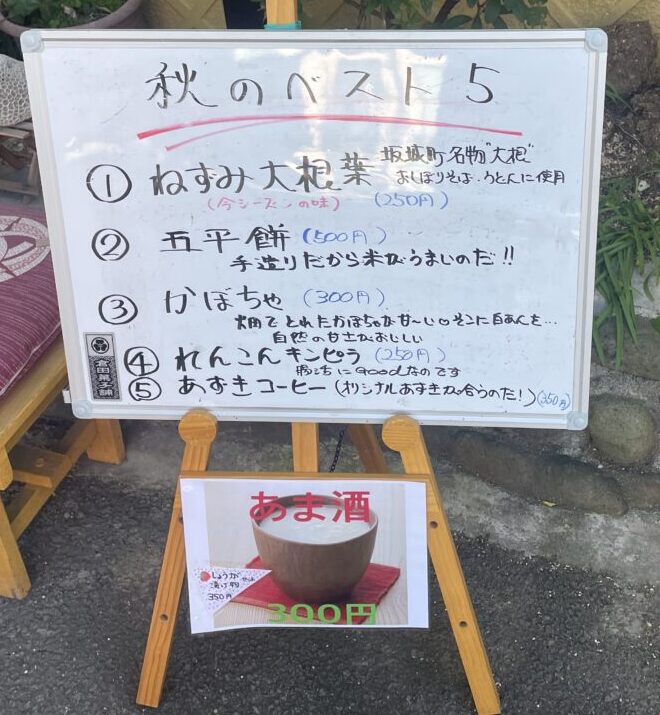 秋のベスト5
① ねずみ大根葉 坂城町名物"大根"
おしぼりそば・うどんに使用
(今シーズンの味) (250円)
② 五平餅 (500円)
手造りだから米がうまいのだ!!
③ かぼちゃ (300円)
畑でとれたかぼちゃが甘〜い♡そこに白あんを…
自然の甘さがおいしい
④ れんこんキンピラ (250円)
腸活にGoodなのです
⑤ あずきコーヒー (オリジナルあずきが合うのだ!) (350円)
あま酒
しょうが
漬け物
350円
300円